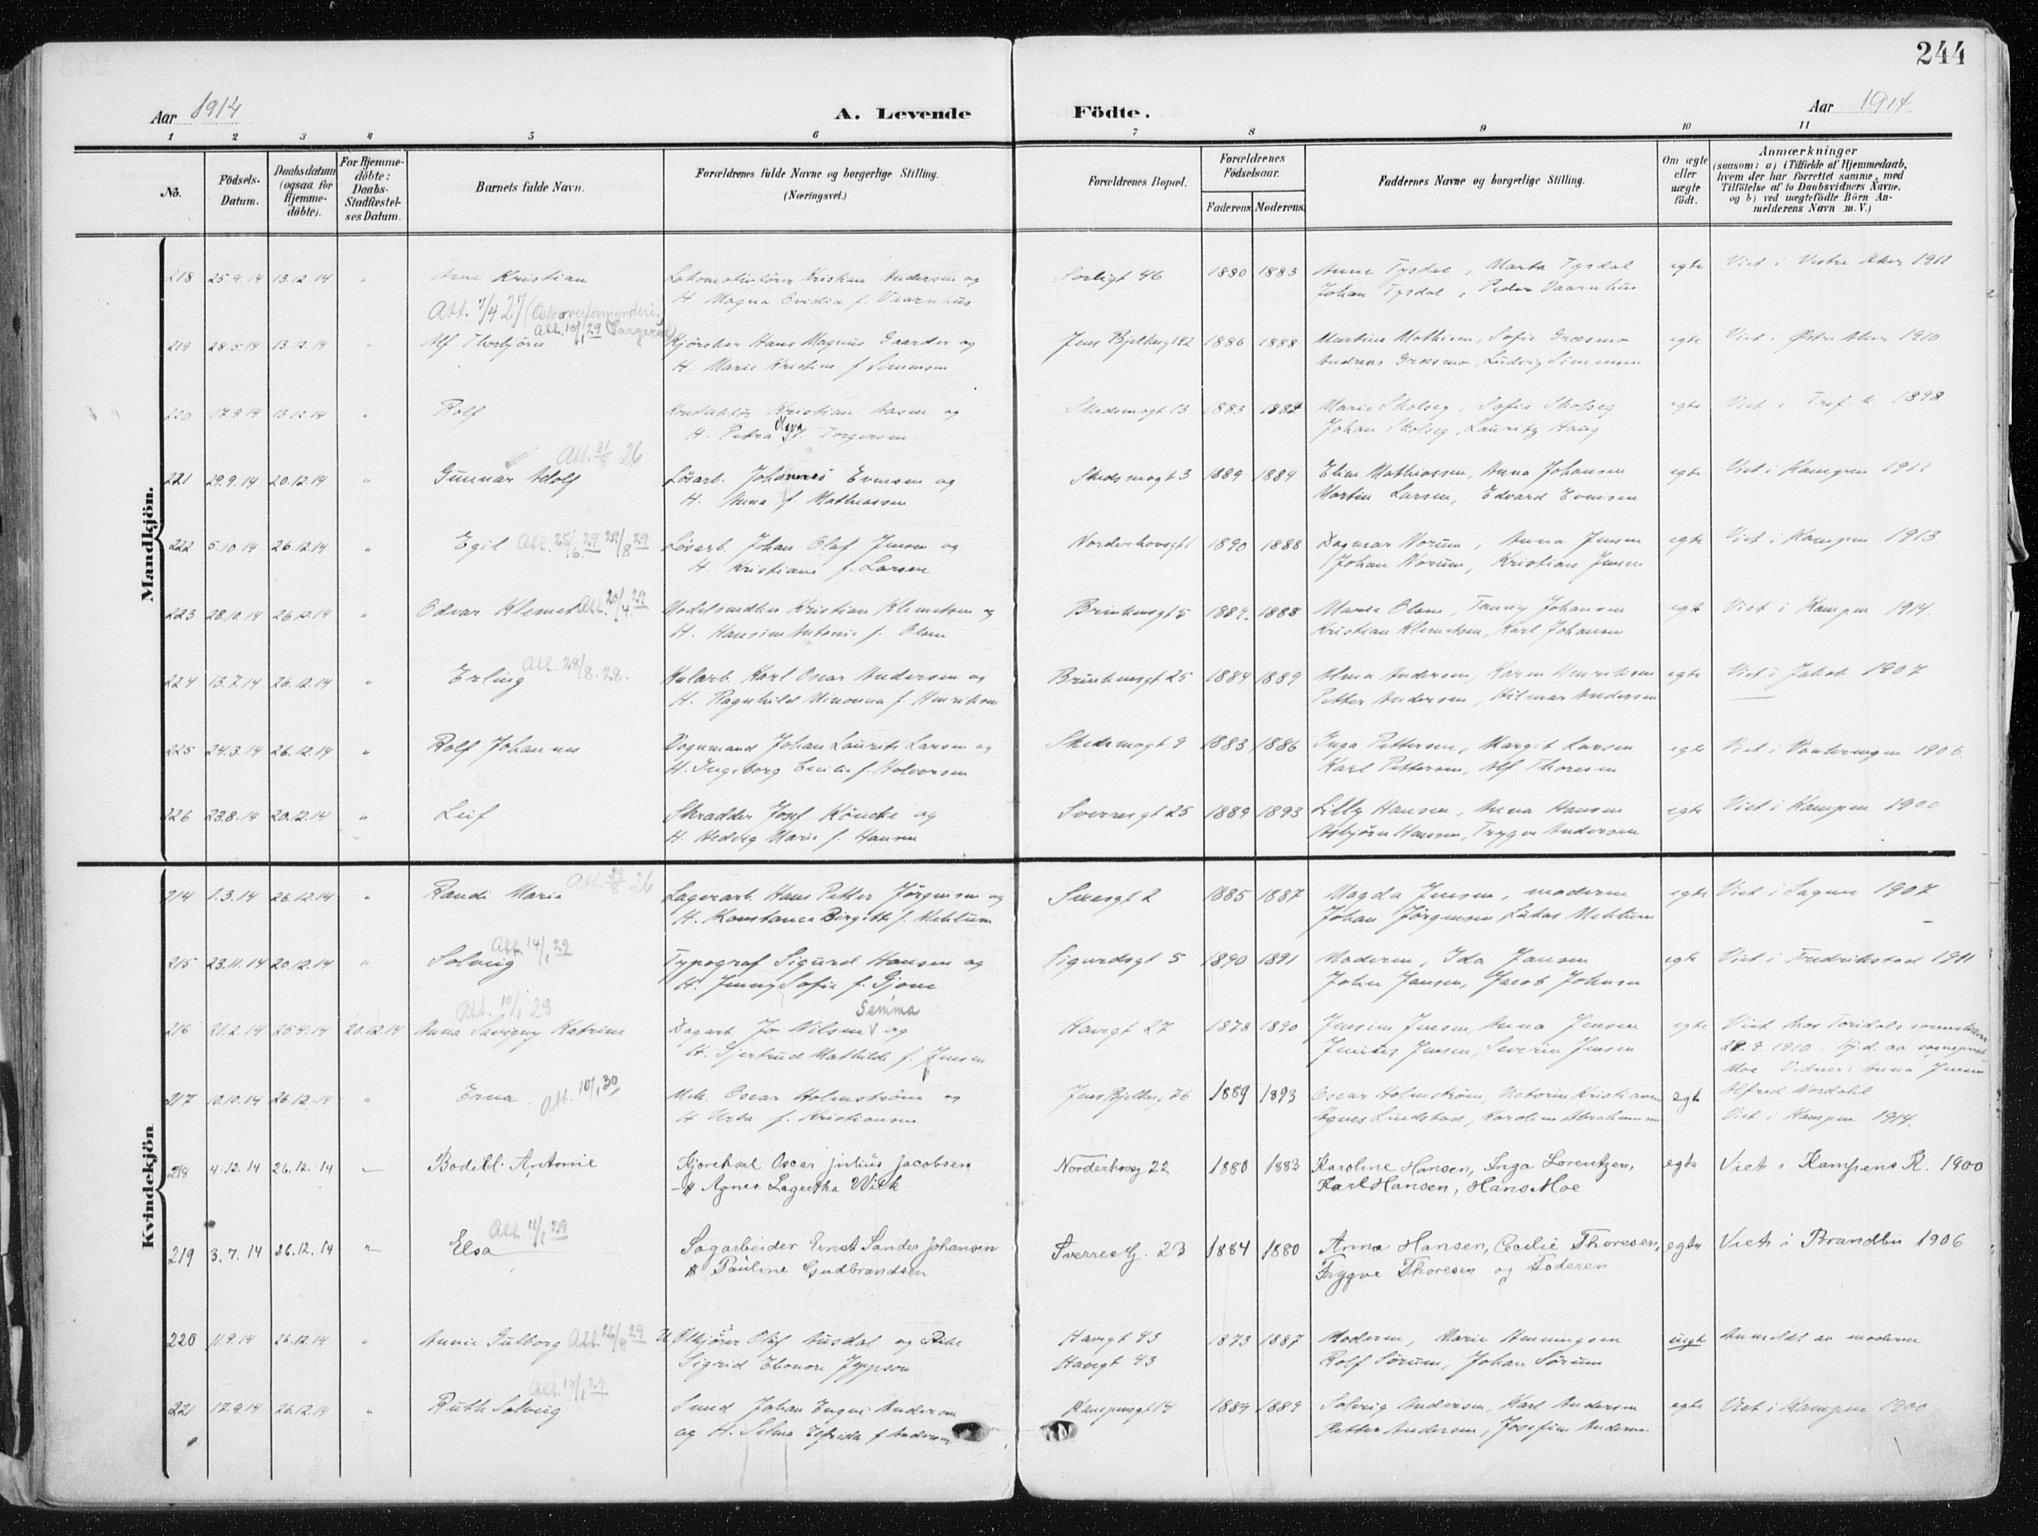 244
Aar 1914 A. Levende Födte. Aar 1914
1 2 3 4 5 6 7 8 9 10 11
Nö. Födsels-Datum. Daabsdatum (ogsaa for Hjemme-döbte). For Hjemme-döbte: Daabs-Stadfæstel-ses Datum. Barnets fulde Navn. Forældrenes fulde Navne og borgerlige Stilling. (Næringsvei.) Forældrenes Bopæl. Forældrenes Födselsaar. Faderens Moderens. Faddernes Navne og borgerlige Stilling. Om ægte eller uægte födt. Anmærkninger (saasom: a) i Tilfælde af Hjemmedaab, hvem der har forrettet samme, med Tilföielse af to Daabsvidners Navne. og b) ved uægtefödte Börn An-melderens Navn m. V.)
Mandkjön.
218 25.9.14 13.12.14 " Arne Kristian Kristian Andersen og Sorligt 46 1880 1883 Anne Tysdal, Marta Tysdal egte Viet i Vestre Aker 1911
H. Magna Ovidia f. Vaarnhus Johan Tysdal, Peder Vaarnhus
Att. 7/4 27 (Oslo overformynderi)
Att. 10/1 29
219 28.5.14 13.12.14 " Alf Thorbjørn Hans Magnus Gaarder og Jens Bjelkesg 12 1886 1888 Martine Mathisen, Sofie Græsmo egte Viet i Østre Aker 1910
H. Marie Kristine f. Simensen Andreas Græsmo, Ludvig Simensen
220 17.9.14 13.12.14 " Rolf Konduktør Kristian Aasen og Skedsmogt 13 1883 1884 Marie Skolseg, Sofie Skolseg egte Viet i Tref. k. 1898
H. Petra Olga f. Torgersen Johan Skolseg, Lauritz Haug
Att. 31/8 26
221 29.9.14 20.12.14 " Gunnar Adolf Løsarb. Johannes Evensen og Skedsmogt 3 1889 1884 Eline Mathiassen, Anna Johansen egte Viet i Kampen 1911
H. Anna f. Mathiassen Martin Larsen, Edvard Evensen
222 5.10.14 26.12.14 " Egil Att. 25/6 29 29/8 29 Løsarb. Johan Olaf Jensen og Norderhovsgt 1 1890 1888 Dagmar Norum, Anna Jensen egte Viet i Kampen 1913
H. Kristiane f. Larsen Johan Norum, Kristian Jensen
223 28.10.14 26.12.14 " Odvar Klemet Att. 20/4 29 Modelsnedker Kristian Klemetsen og Brinkensgt 5 1889 1888 Marie Olsen, Fanny Johansen egt Viet i Kampen 1914.
H. Hansine Antonie f. Olsen Kristian Klemetsen, Karl Johansen
Att. 28/8.28.
224 13.7.14 26.12.14 " Erling Karl Oscar Andersen og Brinkensgt 25 1884 1889 Alma Andersen, Karen Henriksen egte Viet i Jakob 1907
H. Ragnhild Minonna f. Henriksen Petter Andersen, Hilmar Andersen
225 24.3.14 26.12.14 " Rolf Johannes Vognmand Johan Laurits Larsen og Skedsmogt 9 1883 1886 Inga Pettersen, Margit Larsen egte Viet i 1906
H. Ingeborg Cecilie f. Halvorsen Karl Pettersen, Alf Thoresen
226 23.8.14 20.12.14 " Leif Skrædder Josef Köncke og Sverresgt 25 1889 1893 Lilly Hansen, Anna Hansen egte Viet i Kampen 1900
H. Hedvig Marie f. Hansen Asbjørn Hansen, Trygve Andersen
Kvindekjön
214 1.3.14 26.12.14 " Randi Marie Att. 28/8 26 Lagerarb. Hans Petter Jørgensen og 2 1885 1887 Magda Jensen, moderen egte Viet i Sagene 1907
H. Konstance Birgitte f. Mehlum Johan Jørgensen, Lukas Mehlum
Att. 14/1 29
215 23.11.14 20.12.14 " Solveig Typograf Sigurd Hansen og Sigurdsgt 5 1890 1891 Moderen, Ida Jansen egte Viet i Fredrikstad 1911
H. Jenny Sofie f. Gjone John Jansen, Jacob Johnsen
Att. 10/1 28 Semma
216 21.2.14 25.4.14 20.12.14 Anna Katrine Dagarb. Jo Nilsen og Havegt 27 1878 1890 Jensine Jensen, Anna Jensen egte Viet hos
H. Gjertrud Mathilde f. Jensen Jensen, Severin Jensen 28.9.1910. Hj.d. av sogneprest
Moe. Vidner: Anna Jensen
217 12.10.14 26.12.14 " Erna Att. 10/1 30 Mek. Oscar Holmstrøm og Jens Bjelkesg 76 1889 1893 Oscar Holmstrøm, Victorin Kristiansen egte Alfred Nordahl
H. f. Kristiansen Agnes Lindstad, Karoline Abrahamsen Viet i Kampen 1914.
218 4.12.14 26.12.14 " Bodill Antonie Kjørekarl Oscar Julius Jacobsen Norderhovsg 22 1880 1883 Karoline Hansen, Inga Lorentzen, egte Viet i Kampens K. 1900
H Agnes Lagertha Wick Karl Hansen, Hans Moe
Att. 11/1 29
219 3.7.14 26.12.14 " Elsa Sagarbeider Ernst Sander Johansen Sverres G. 23 1884 1880 Anna Hansen, Cecilie Thoresen, egte Viet i Brandbu 1906
H Pauline Gudbrandsen Trygve Thoresen og Faderen
220 11.9.14 26.12.14 " Annie Gulborg Att. 26/8 29 Olaf Ausdal og Havegt 43 1873 1887 Moderen, Marie Henningsen uegt Anmeldt av moderen
Sigrid Elonore Jeppson Havegt 43 Rolf Sørum, Johan Sørum
Att. 10/1 29
221 17.9.14 26.12.14 " Ruth Solveig Smed Johan Yngve Andersen Kampensgt 14 1889 1889 Solveig Andersen, Karl Andersen egte Viet i Kampen 1900
og H. Selma Elfrida f. Andersen Petter Andersen, Josefine Andersen